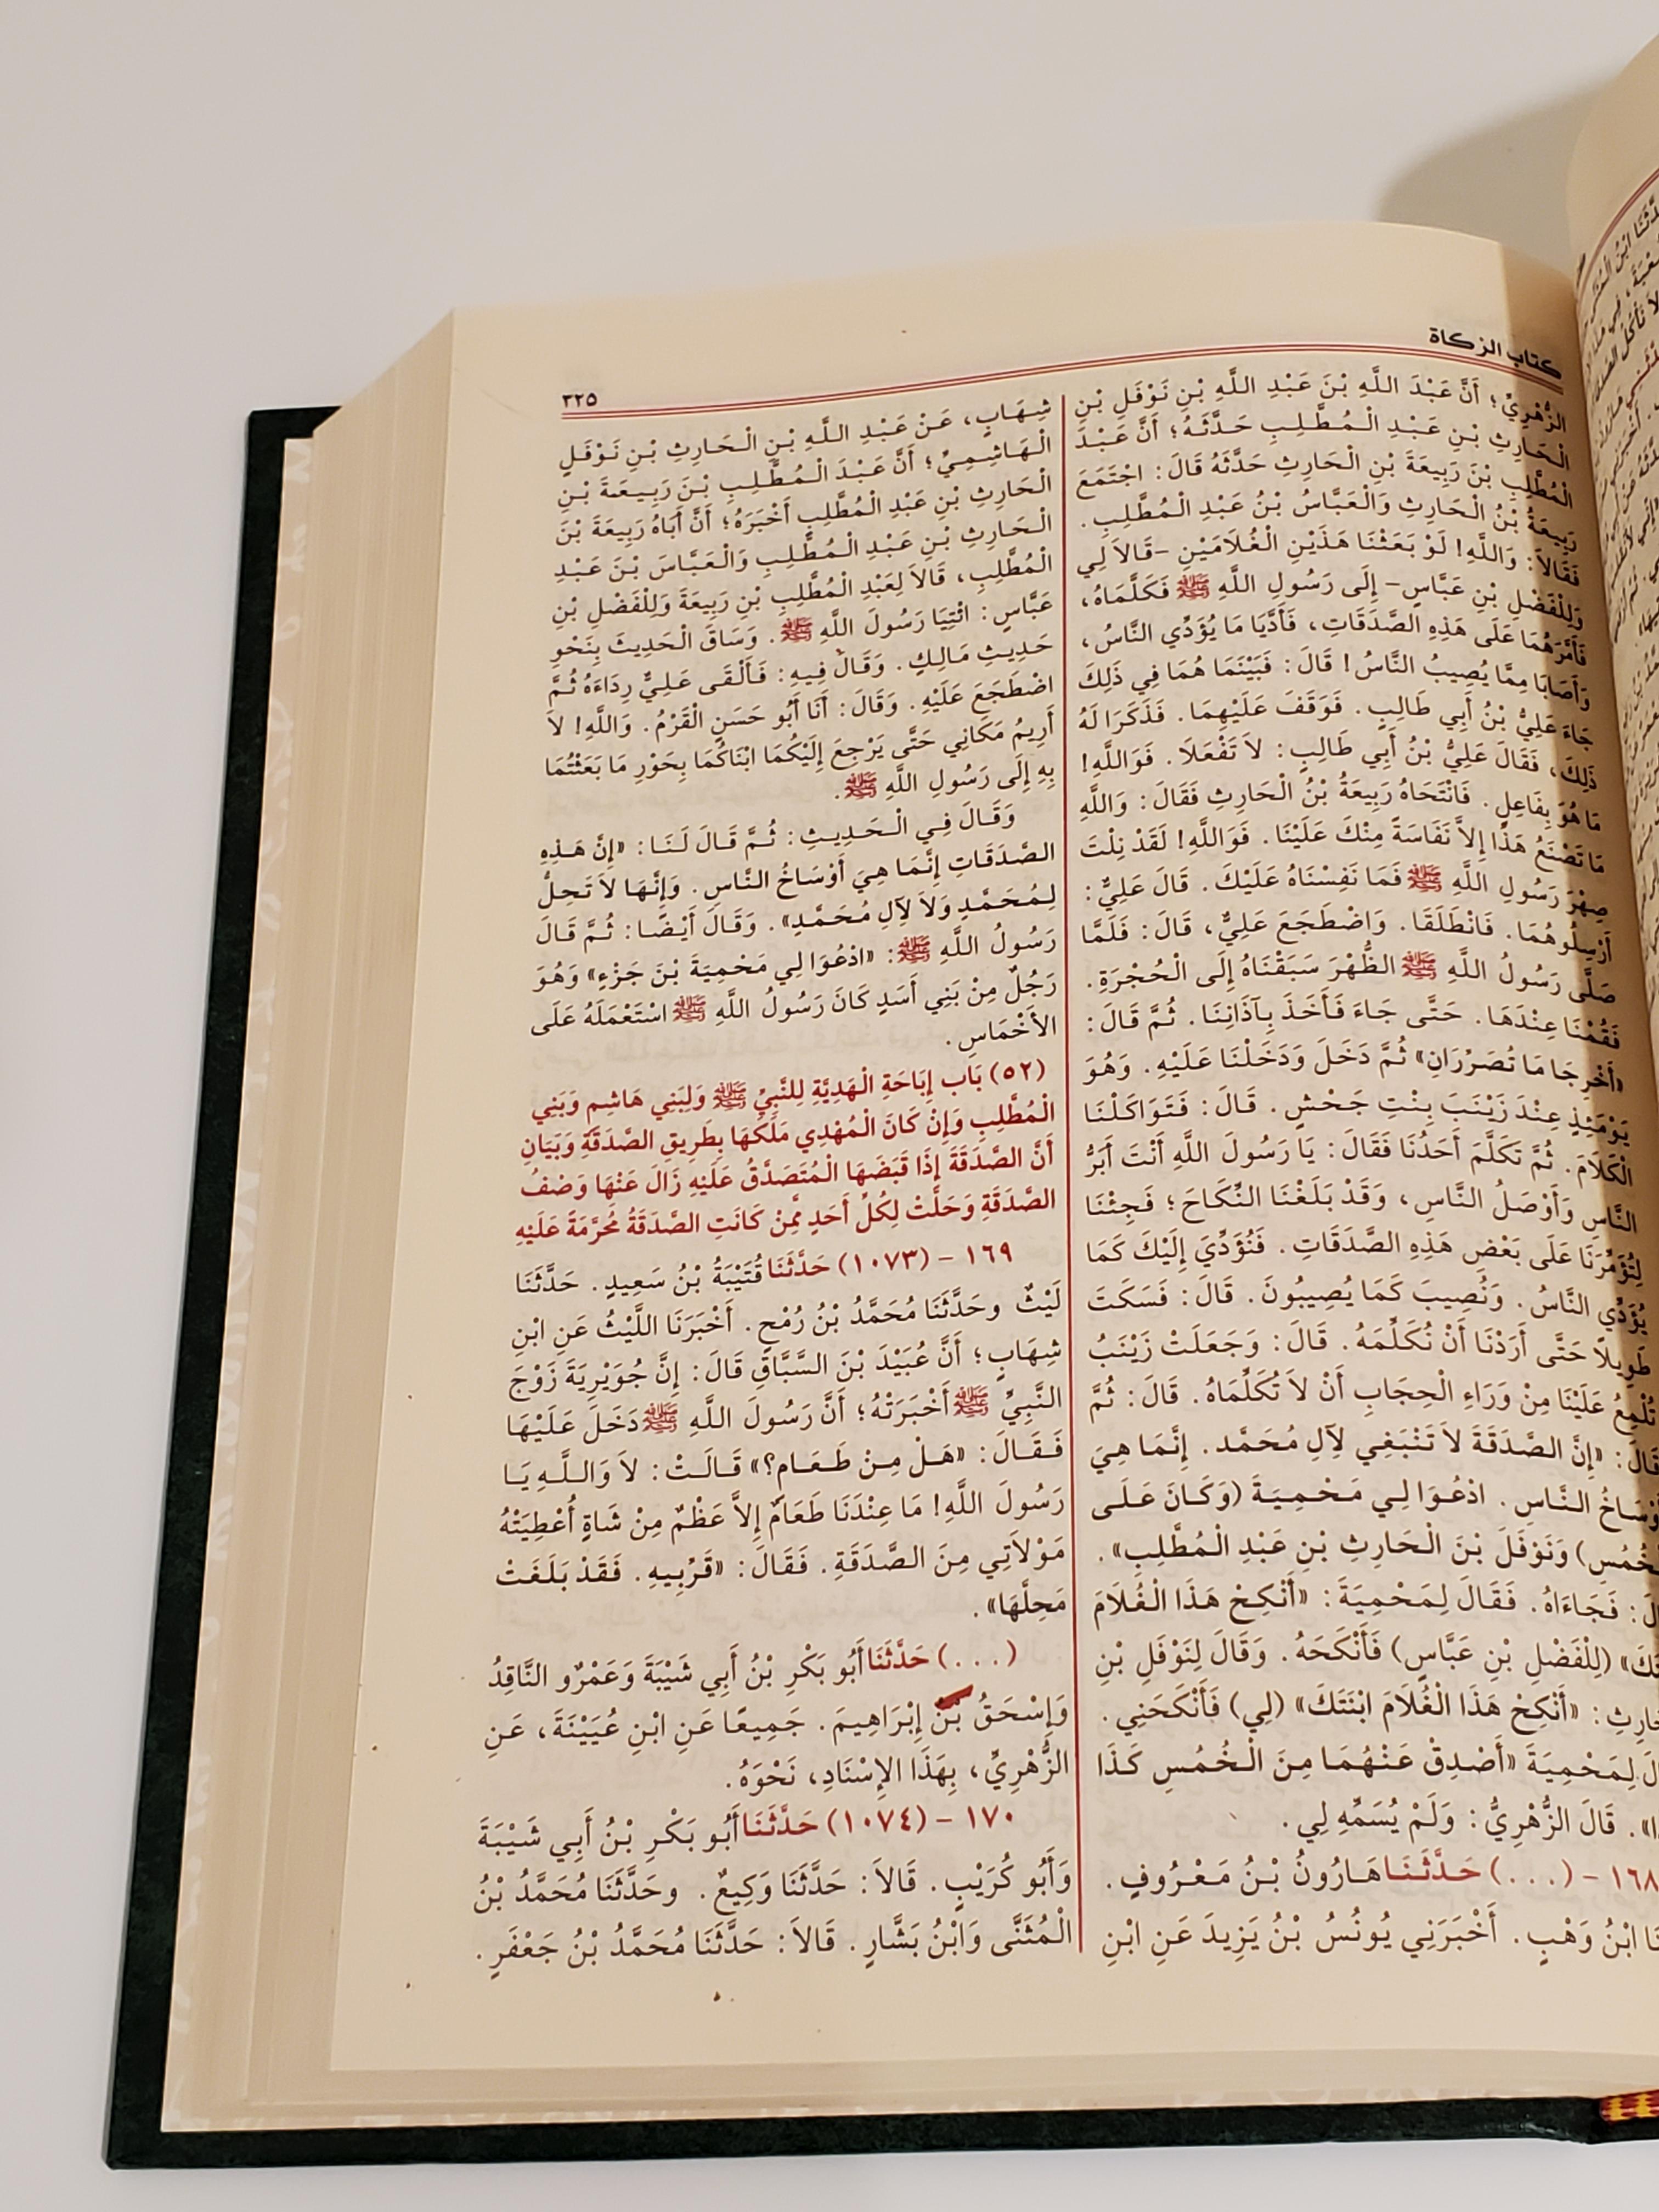 كتاب الزكاة
٣٢٥
الزُّهْرِيِّ؛ أَنَّ عَبْدَ اللَّهِ بْنَ عَبْدِ اللَّهِ بْنِ نَوْفَلِ بْنِ
الْحَارِثِ بْنِ عَبْدِ الْمُطَّلِبِ حَدَّثَهُ؛ أَنَّ عَبْدَ
الْمُطَّلِبِ بْنَ رَبِيعَةَ بْنِ الْحَارِثِ حَدَّثَهُ قَالَ: اجْتَمَعَ
رَبِيعَةُ بْنُ الْحَارِثِ وَالْعَبَّاسُ بْنُ عَبْدِ الْمُطَّلِبِ.
فَقَالَا: وَاللَّهِ! لَوْ بَعَثْنَا هَذَيْنِ الْغُلَامَيْنِ -قَالَا لِي
وَلِلْفَضْلِ بْنِ عَبَّاسٍ- إِلَى رَسُولِ اللَّهِ ﷺ فَكَلَّمَاهُ،
فَأَمَّرَهُمَا عَلَى هَذِهِ الصَّدَقَاتِ، فَأَدَّيَا مَا يُؤَدِّي النَّاسُ،
وَأَصَابَا مِمَّا يُصِيبُ النَّاسُ! قَالَ: فَبَيْنَمَا هُمَا فِي ذَلِكَ
جَاءَ عَلِيُّ بْنُ أَبِي طَالِبٍ. فَوَقَفَ عَلَيْهِمَا. فَذَكَرَا لَهُ
ذَلِكَ، فَقَالَ عَلِيُّ بْنُ أَبِي طَالِبٍ: لاَ تَفْعَلَا. فَوَاللَّهِ!
مَا هُوَ بِفَاعِلٍ. فَانْتَحَاهُ رَبِيعَةُ بْنُ الْحَارِثِ فَقَالَ: وَاللَّهِ
مَا تَصْنَعُ هَذَا إِلاَّ نَفَاسَةً مِنْكَ عَلَيْنَا. فَوَاللَّهِ! لَقَدْ نِلْتَ
صِهْرَ رَسُولِ اللَّهِ ﷺ فَمَا نَفِسْنَاهُ عَلَيْكَ. قَالَ عَلِيٌّ:
أَرْسِلُوهُمَا. فَانْطَلَقَا. وَاضْطَجَعَ عَلِيٌّ، قَالَ: فَلَمَّا
صَلَّى رَسُولُ اللَّهِ ﷺ الظُّهْرَ سَبَقْنَاهُ إِلَى الْحُجْرَةِ.
فَقُمْنَا عِنْدَهَا. حَتَّى جَاءَ فَأَخَذَ بِآذَانِنَا. ثُمَّ قَالَ:
«أَخْرِجَا مَا تُصَرِّرَانِ» ثُمَّ دَخَلَ وَدَخَلْنَا عَلَيْهِ. وَهُوَ
يَوْمَئِذٍ عِنْدَ زَيْنَبَ بِنْتِ جَحْشٍ. قَالَ: فَتَوَاكَلْنَا
الْكَلَامَ. ثُمَّ تَكَلَّمَ أَحَدُنَا فَقَالَ: يَا رَسُولَ اللَّهِ أَنْتَ أَبَرُّ
النَّاسِ وَأَوْصَلُ النَّاسِ، وَقَدْ بَلَغْنَا النِّكَاحَ؛ فَجِئْنَا
لِتُؤَمِّرَنَا عَلَى بَعْضِ هَذِهِ الصَّدَقَاتِ. فَنُؤَدِّيَ إِلَيْكَ كَمَا
يُؤَدِّي النَّاسُ. وَنُصِيبَ كَمَا يُصِيبُونَ. قَالَ: فَسَكَتَ
طَوِيلًا حَتَّى أَرَدْنَا أَنْ نُكَلِّمَهُ. قَالَ: وَجَعَلَتْ زَيْنَبُ
تُلْمِعُ عَلَيْنَا مِنْ وَرَاءِ الْحِجَابِ أَنْ لاَ تُكَلِّمَاهُ. قَالَ: ثُمَّ
قَالَ: «إِنَّ الصَّدَقَةَ لاَ تَنْبَغِي لِآلِ مُحَمَّدٍ. إِنَّمَا هِيَ
أَوْسَاخُ النَّاسِ. ادْعُوَا لِي مَحْمِيَةَ (وَكَانَ عَلَى
الْخُمُسِ) وَنَوْفَلَ بْنَ الْحَارِثِ بْنِ عَبْدِ الْمُطَّلِبِ».
قَالَ: فَجَاءَاهُ. فَقَالَ لِمَحْمِيَةَ: «أَنْكِحْ هَذَا الْغُلَامَ
(لِلْفَضْلِ بْنِ عَبَّاسٍ) فَأَنْكَحَهُ. وَقَالَ لِنَوْفَلِ بْنِ
: «أَنْكِحْ هَذَا الْغُلَامَ ابْنَتَكَ» (لِي) فَأَنْكَحَنِي.
لِمَحْمِيَةَ «أَصْدِقْ عَنْهُمَا مِنَ الْخُمُسِ كَذَا
. قَالَ الزُّهْرِيُّ: وَلَمْ يُسَمِّهِ لِي.
١٦٨ - (...) حَدَّثَنَا هَارُونُ بْنُ مَعْرُوفٍ.
ابْنُ وَهْبٍ. أَخْبَرَنِي يُونُسُ بْنُ يَزِيدَ عَنِ ابْنِ
شِهَابٍ، عَنْ عَبْدِ اللَّهِ بْنِ الْحَارِثِ بْنِ نَوْفَلٍ
الْهَاشِمِيِّ؛ أَنَّ عَبْدَ الْمُطَّلِبِ بْنَ رَبِيعَةَ بْنِ
الْحَارِثِ بْنِ عَبْدِ الْمُطَّلِبِ أَخْبَرَهُ؛ أَنَّ أَبَاهُ رَبِيعَةَ بْنَ
الْحَارِثِ بْنِ عَبْدِ الْمُطَّلِبِ وَالْعَبَّاسَ بْنَ عَبْدِ
الْمُطَّلِبِ، قَالَا لِعَبْدِ الْمُطَّلِبِ بْنِ رَبِيعَةَ وَلِلْفَضْلِ بْنِ
عَبَّاسٍ: ائْتِيَا رَسُولَ اللَّهِ ﷺ. وَسَاقَ الْحَدِيثَ بِنَحْوِ
حَدِيثِ مَالِكٍ. وَقَالَ فِيهِ: فَأَلْقَى عَلِيٌّ رِدَاءَهُ ثُمَّ
اضْطَجَعَ عَلَيْهِ. وَقَالَ: أَنَا أَبُو حَسَنٍ الْقَرْمُ. وَاللَّهِ! لاَ
أَرِيمُ مَكَانِي حَتَّى يَرْجِعَ إِلَيْكُمَا ابْنَاكُمَا بِحَوْرِ مَا بَعَثْتُمَا
بِهِ إِلَى رَسُولِ اللَّهِ ﷺ.
وَقَالَ فِي الْحَدِيثِ: ثُمَّ قَالَ لَنَا: «إِنَّ هَذِهِ
الصَّدَقَاتِ إِنَّمَا هِيَ أَوْسَاخُ النَّاسِ. وَإِنَّهَا لاَ تَحِلُّ
لِمُحَمَّدٍ وَلاَ لِآلِ مُحَمَّدٍ». وَقَالَ أَيْضًا: ثُمَّ قَالَ
رَسُولُ اللَّهِ ﷺ: «ادْعُوَا لِي مَحْمِيَةَ بْنَ جَزْءٍ» وَهُوَ
رَجُلٌ مِنْ بَنِي أَسَدٍ كَانَ رَسُولُ اللَّهِ ﷺ اسْتَعْمَلَهُ عَلَى
الأَخْمَاسِ.
(٥٢) بَاب إِبَاحَةِ الْهَدِيَّةِ لِلنَّبِيِّ ﷺ وَلِبَنِي هَاشِمٍ وَبَنِي
الْمُطَّلِبِ وَإِنْ كَانَ الْمُهْدِي مَلَكَهَا بِطَرِيقِ الصَّدَقَةِ وَبَيَانِ
أَنَّ الصَّدَقَةَ إِذَا قَبَضَهَا الْمُتَصَدَّقُ عَلَيْهِ زَالَ عَنْهَا وَصْفُ
الصَّدَقَةِ وَحَلَّتْ لِكُلِّ أَحَدٍ مِمَّنْ كَانَتِ الصَّدَقَةُ مُحَرَّمَةً عَلَيْهِ
١٦٩ - (١٠٧٣) حَدَّثَنَا قُتَيْبَةُ بْنُ سَعِيدٍ. حَدَّثَنَا
لَيْثٌ وحَدَّثَنَا مُحَمَّدُ بْنُ رُمْحٍ. أَخْبَرَنَا اللَّيْثُ عَنِ ابْنِ
شِهَابٍ؛ أَنَّ عُبَيْدَ بْنَ السَّبَّاقِ قَالَ: إِنَّ جُوَيْرِيَةَ زَوْجَ
النَّبِيِّ ﷺ أَخْبَرَتْهُ؛ أَنَّ رَسُولَ اللَّهِ ﷺ دَخَلَ عَلَيْهَا
فَقَالَ: «هَلْ مِنْ طَعَامٍ؟» قَالَتْ: لاَ وَاللَّهِ يَا
رَسُولَ اللَّهِ! مَا عِنْدَنَا طَعَامٌ إِلاَّ عَظْمٌ مِنْ شَاةٍ أُعْطِيَتْهُ
مَوْلَاتِي مِنَ الصَّدَقَةِ. فَقَالَ: «قَرِّبِيهِ. فَقَدْ بَلَغَتْ
مَحِلَّهَا».
(...) حَدَّثَنَا أَبُو بَكْرِ بْنُ أَبِي شَيْبَةَ وَعَمْرٌو النَّاقِدُ
وَإِسْحَقُ بْنُ إِبْرَاهِيمَ. جَمِيعًا عَنِ ابْنِ عُيَيْنَةَ، عَنِ
الزُّهْرِيِّ، بِهَذَا الإِسْنَادِ، نَحْوَهُ.
١٧٠ - (١٠٧٤) حَدَّثَنَا أَبُو بَكْرِ بْنُ أَبِي شَيْبَةَ
وَأَبُو كُرَيْبٍ. قَالاَ: حَدَّثَنَا وَكِيعٌ. وحَدَّثَنَا مُحَمَّدُ بْنُ
الْمُثَنَّى وَابْنُ بَشَّارٍ. قَالاَ: حَدَّثَنَا مُحَمَّدُ بْنُ جَعْفَرٍ.